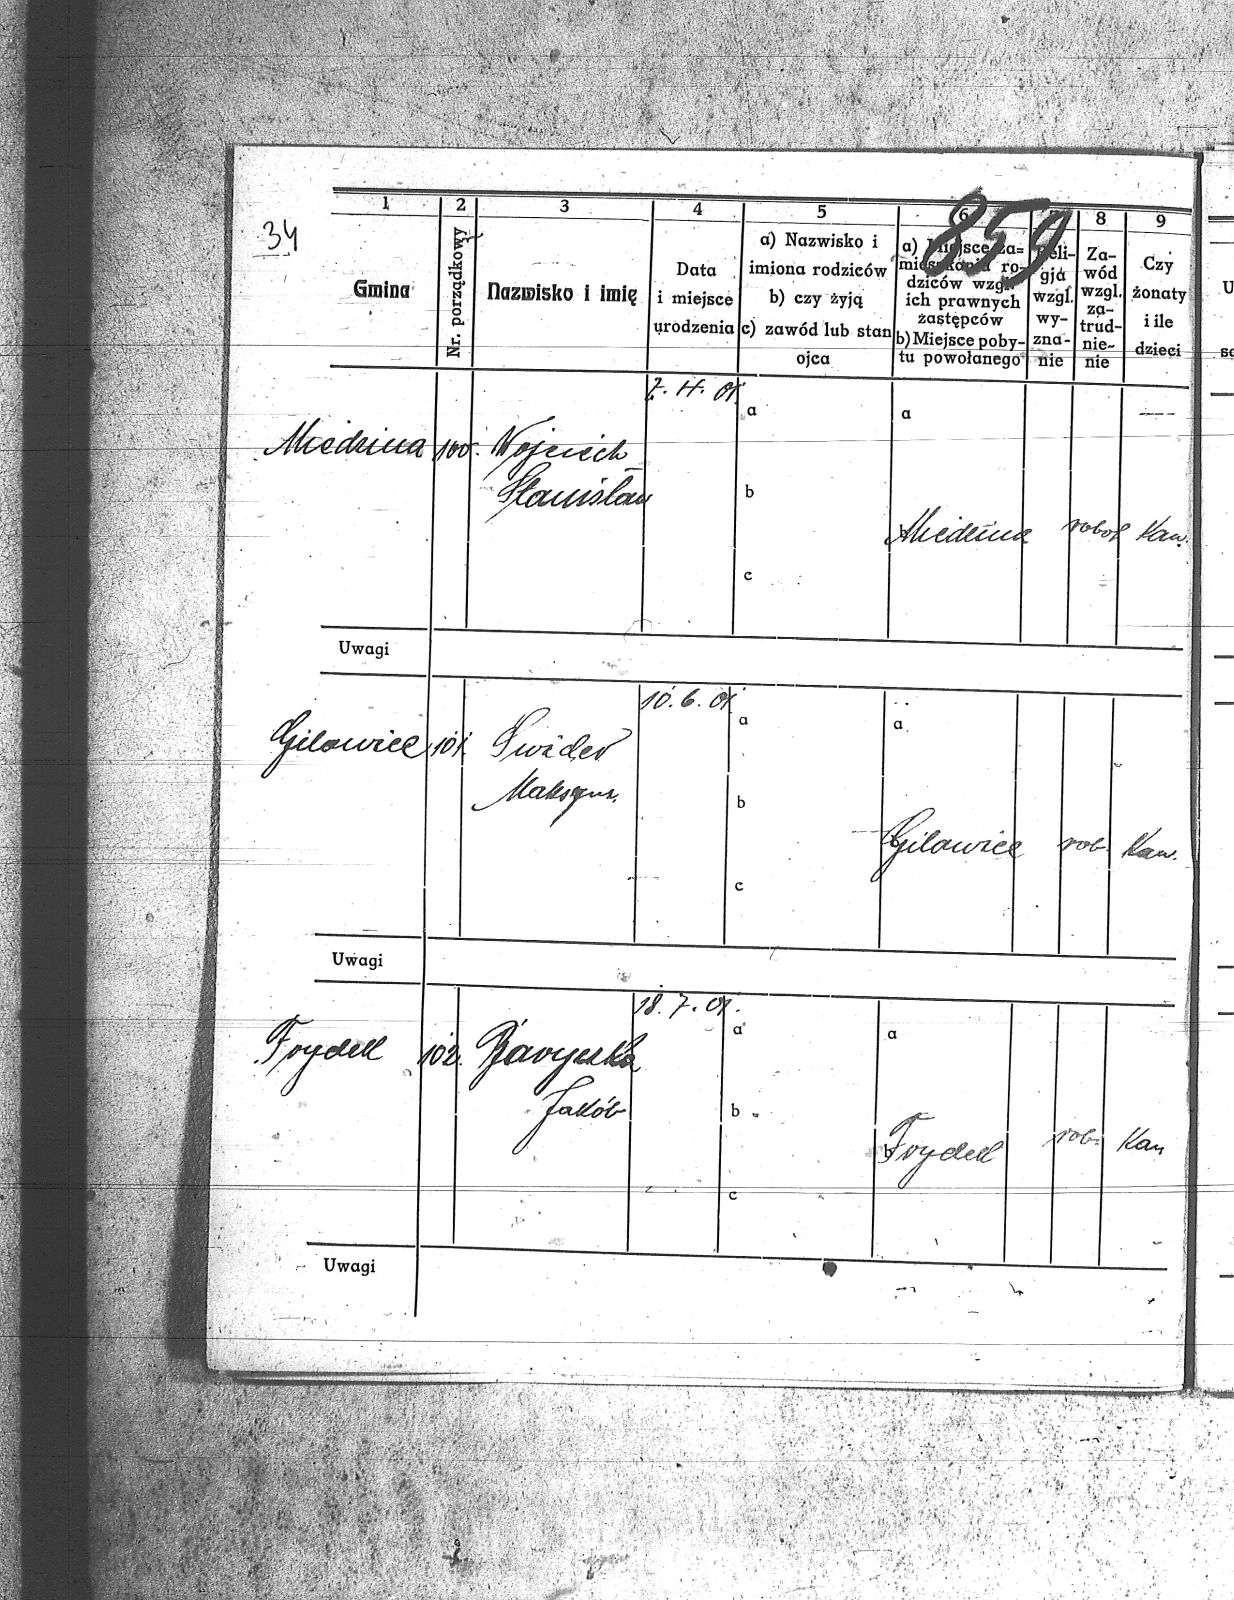 34
859
1 2 3 4 5 6 8 9
Gmina
Nr. porządkowy
Nazwisko i imię
Data
i miejsce
urodzenia
a) Nazwisko i
imiona rodziców
b) czy żyją
c) zawód lub stan
ojca
a) Miejsce za=
mieszkania ro-
dziców wzgl.
ich prawnych
zastępców
b) Miejsce poby-
tu powołanego
Reli-
gja
wzgl.
wy-
zna-
nie
Za-
wód
wzgl.
za-
trud-
nie-
nie
Czy
żonaty
i ile
dzieci
Miedźna 100. Wojciech
Stanisław
a
b
c
a
Miedźna robot Kaw.
Uwagi
Gilowice 101. Swider
10.6.01.
a
b
c
a
Gilowice rob. Kaw.
Uwagi
Frydek 102.
Jakób
18.7.01.
a
b
c
a
b
Frydek rob. Kaw
Uwagi